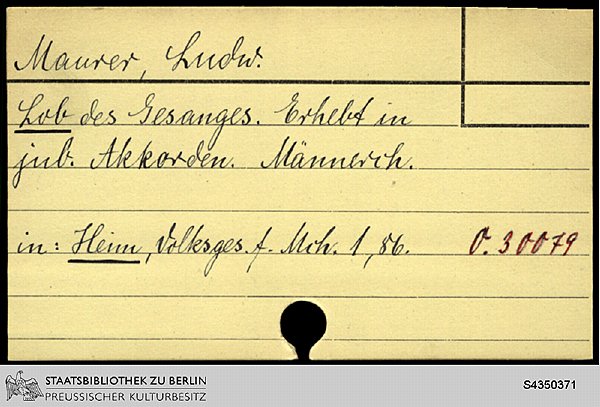 Maurer, Ludw.
Lob des Gesanges. Erhebt in
jub. Akkorden. Männerch.
in: Heim, Volksges. f. Mch. 1, 86. O. 30079
STAATSBIBLIOTHEK ZU BERLIN
PREUSSISCHER KULTURBESITZ
S4350371